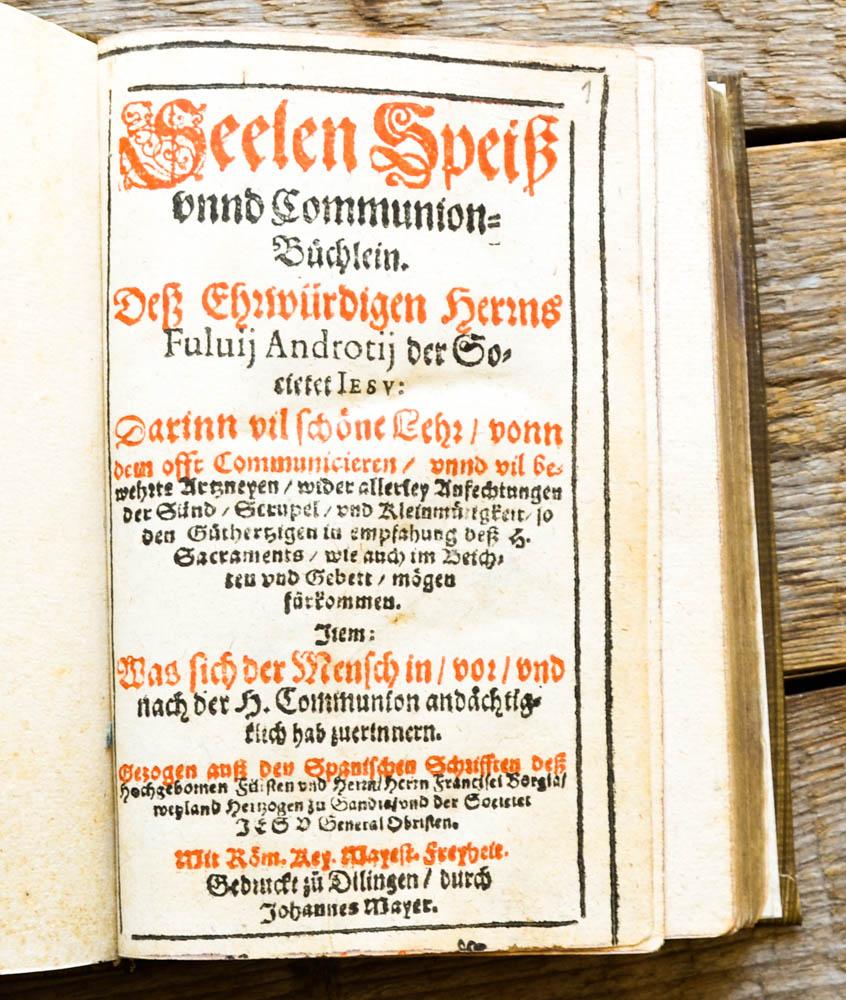 1
Seelen Speiß
vnnd Communion-
Büchlein.
Deß Ehrwürdigen Herrns
Fuluij Androtij der So-
cietet IESV:
Darinn vil schöne Lehr / vonn
dem offt Communicieren / vnnd vil be-
wehrte Artzneyen / wider allerley Anfechtungen
der Sünd / Scrupel / vnd Kleinmütigkeit / so
den Güthertzigen in empfahung deß H.
Sacraments / wie auch im Beich-
ten vnd Gebett / mögen
fürkommen.
Item:
Was sich der Mensch in / vor / vnd
nach der H. Communion andächtig-
klich hab zuerinnern.
Gezogen auß den Spanischen Schrifften deß
Hochgebornen Fürsten vnd Herrn / Herrn Francisci Borgia /
weyland Hertzogen zu Gandia / vnd der Societet
IESV General Obristen.
Mit Röm. Key. Mayest. Freyheit.
Gedruckt zů Dilingen / durch
Johannes Mayer.